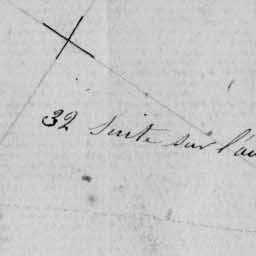 32 suite sur l'au